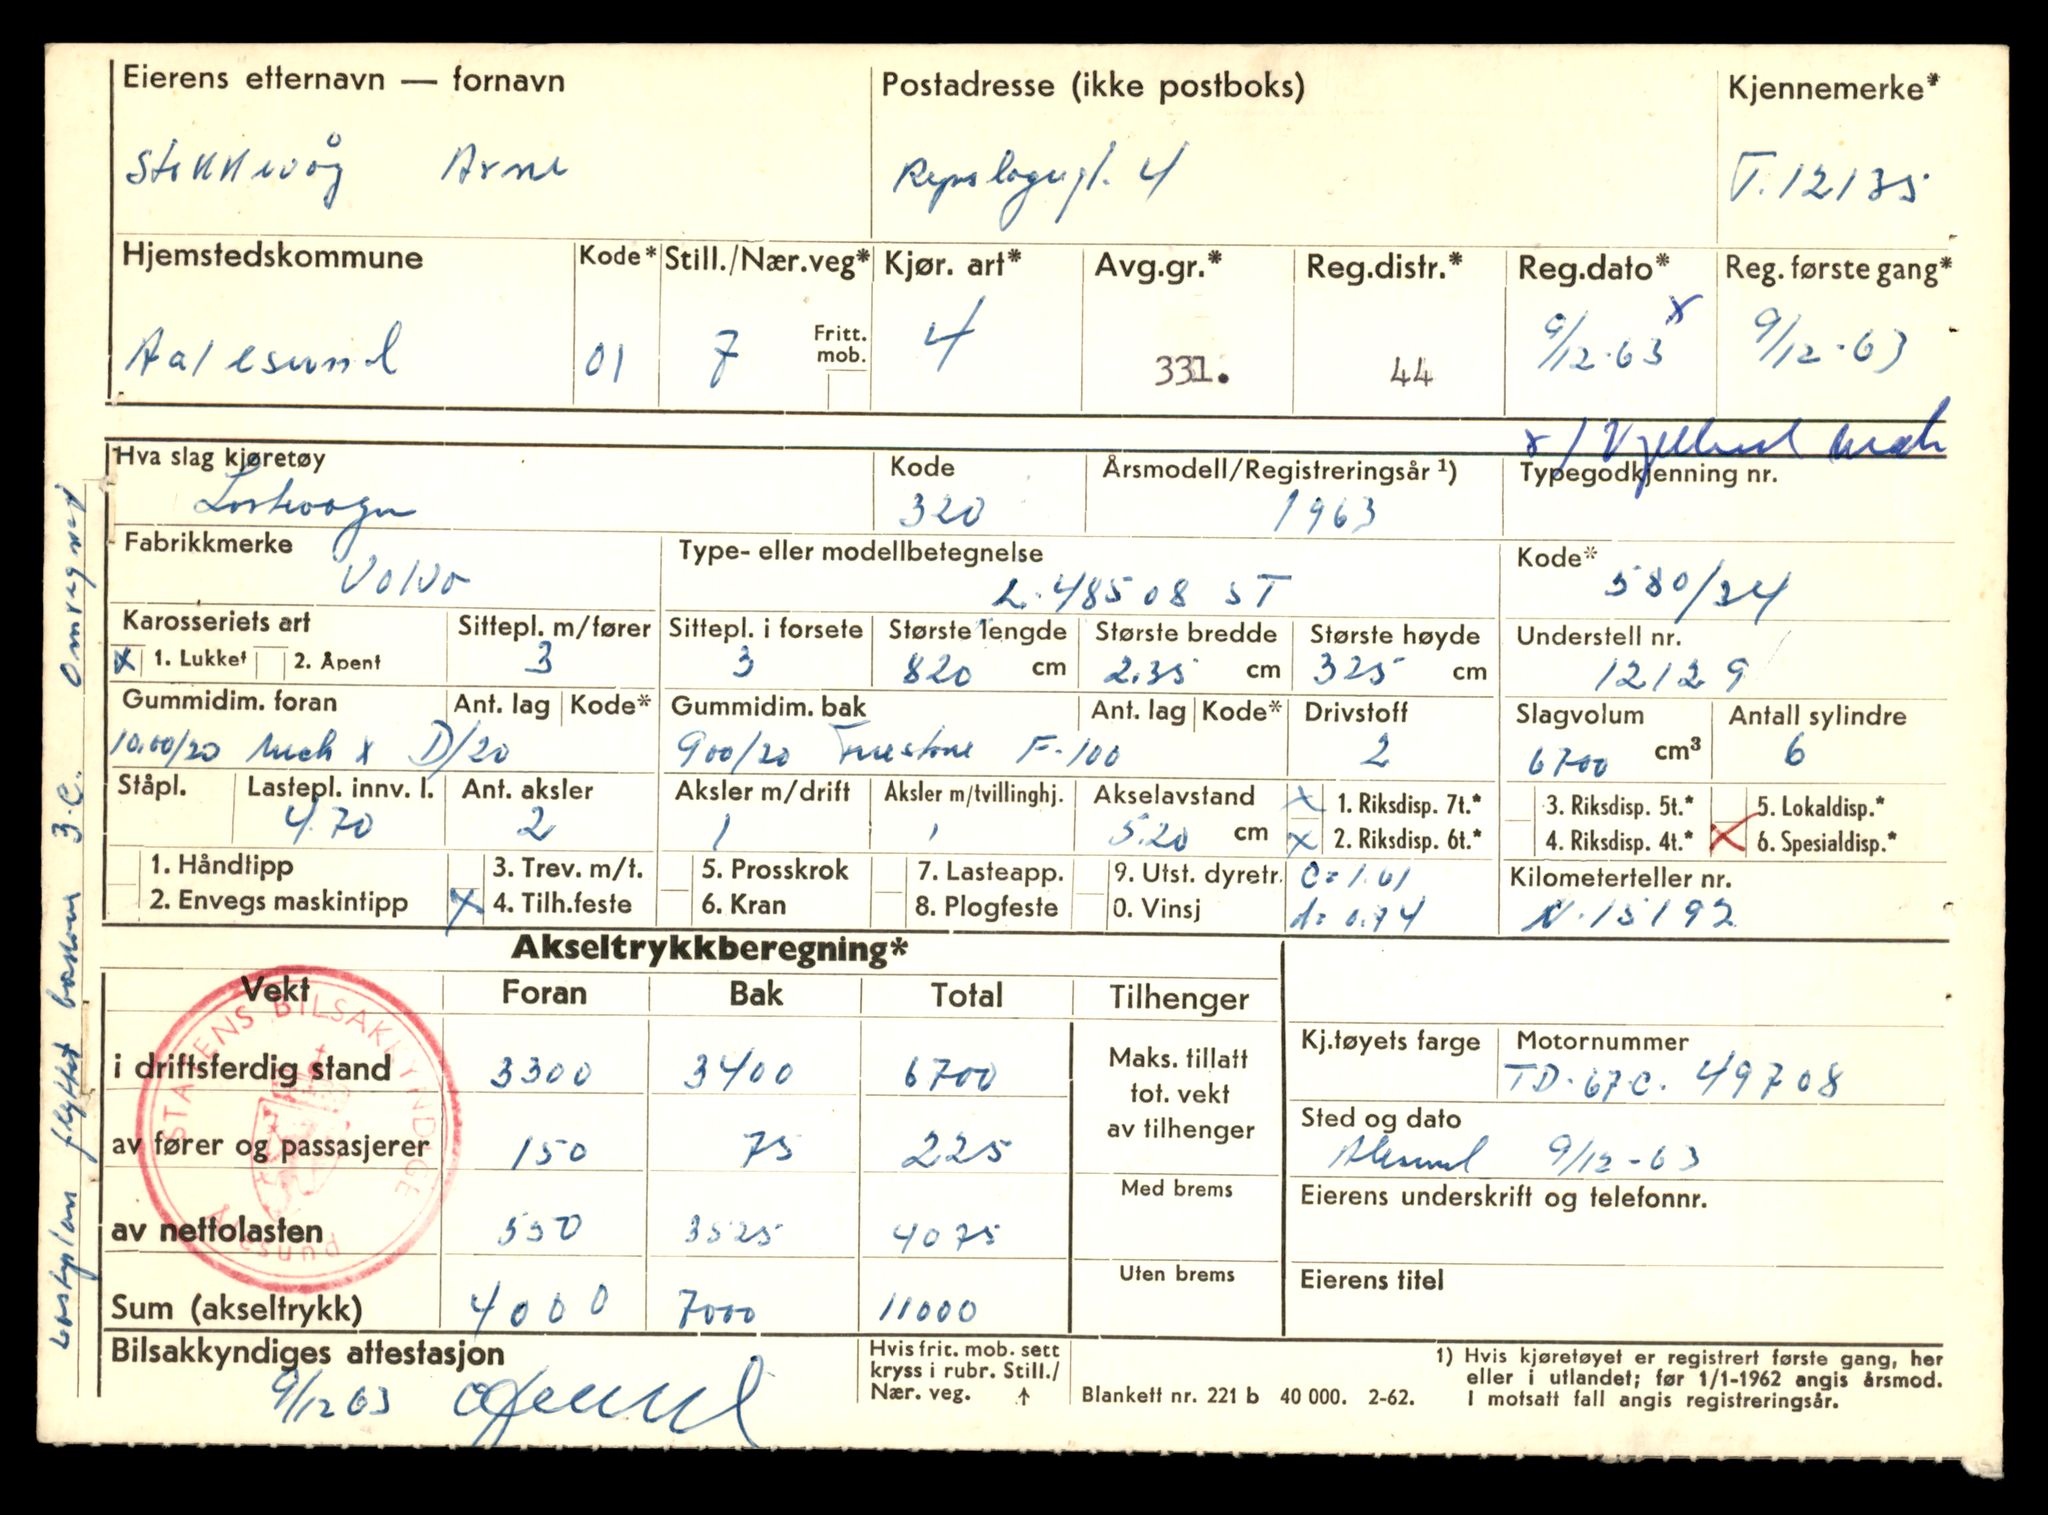 Eierens etternavn — fornavn
Postadresse (ikke postboks)
Kjennemerke*
Stokkevåg Arne
Repslagergt. 4
T. 12135
Hjemstedskommune
Kode*
Still./Nær.veg*
Kjør. art*
Avg.gr.*
Reg.distr.*
Reg.dato*
Reg. første gang*
Aalesund
01
7
Fritt. mob.
4
331.
44
9/12-63 x
9/12-63
x/
Hva slag kjøretøy
Kode
Årsmodell/Registreringsår ¹)
Typegodkjenning nr.
Lastevogn
320
1963
Fabrikkmerke
Type- eller modellbetegnelse
Kode*
Volvo
L.48508 ST
580/34
Karosseriets art
Sittepl. m/fører
Sittepl. i forsete
Største lengde
Største bredde
Største høyde
Understell nr.
x 1. Lukket
2. Åpent
3
3
820 cm
2.35 cm
325 cm
12129
Gummidim. foran
Ant. lag
Kode*
Gummidim. bak
Ant. lag
Kode*
Drivstoff
Slagvolum
Antall sylindre
10.00/20 Mich x D/20
900/20 Firestone F-100
2
6700 cm³
6
Ståpl.
Lastepl. innv. l.
Ant. aksler
Aksler m/drift
Aksler m/tvillinghj.
Akselavstand
x 1. Riksdisp. 7t.*
3. Riksdisp. 5t.*
5. Lokaldisp.*
4.70
2
1
1
5.20 cm
x 2. Riksdisp. 6t.*
4. Riksdisp. 4t.*
x 6. Spesialdisp.*
1. Håndtipp
3. Trev. m/t.
5. Prosskrok
7. Lasteapp.
9. Utst. dyretr.
C = 1.61
Kilometerteller nr.
2. Envegs maskintipp
x 4. Tilh.feste
6. Kran
8. Plogfeste
0. Vinsj
d = 0.74
N. 15192
Akseltrykkberegning*
Vekt
Foran
Bak
Total
Tilhenger
Kj.tøyets farge
Motornummer
i driftsferdig stand
3300
3400
6700
Maks. tillatt
tot. vekt
av tilhenger
TD. 67.C. 49708
Sted og dato
av fører og passasjerer
150
75
225
Alesund 9/12-63
Med brems
Eierens underskrift og telefonnr.
av nettolasten
550
3525
4075
Uten brems
Eierens titel
Sum (akseltrykk)
4000
7000
11000
Bilsakkyndiges attestasjon
9/12 63
Hvis frit. mob. sett
kryss i rubr. Still./
Nær. veg. ↑
Blankett nr. 221 b 40 000. 2-62.
1) Hvis kjøretøyet er registrert første gang, her
eller i utlandet; før 1/1-1962 angis årsmod.
I motsatt fall angis registreringsår.
STATENS BILSAKKYNDIGE
Ålesund
Lasteplan flyttet bakover 3 C. Omregnet